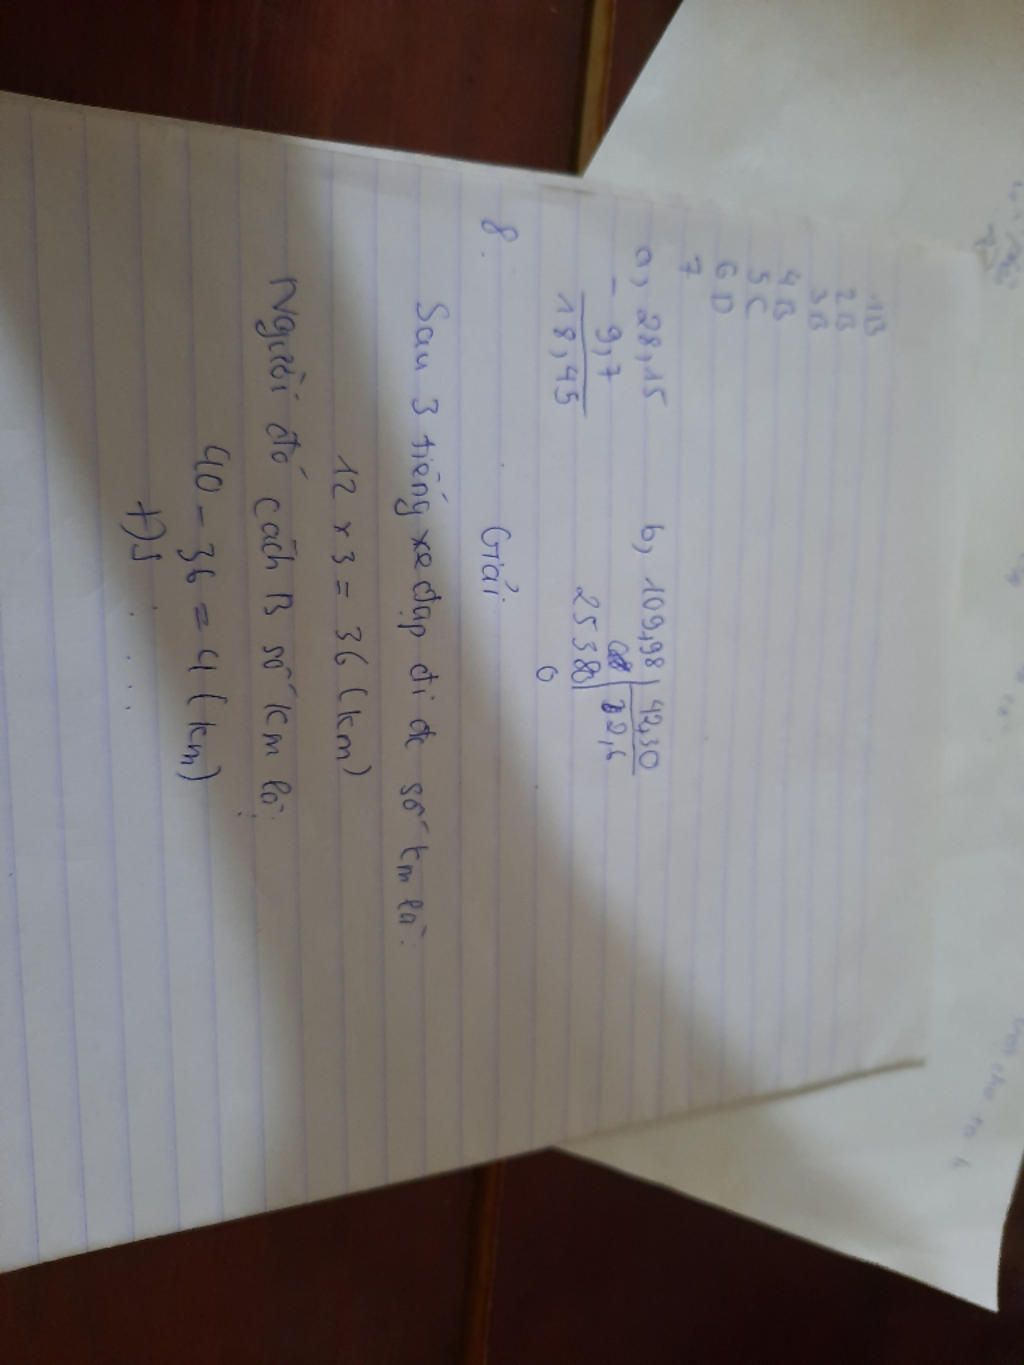 1B
2B
3B
4B
5C
6D
7
a, 28,15
- 9,7
18,45
b, 109,98 42,30
2538 2,6
0
8.
Giải
Sau 3 tiếng xe đạp đi đc số km là:
12 x 3 = 36 (km)
Người đó cách B số km là:
40 - 36 = 4 (km)